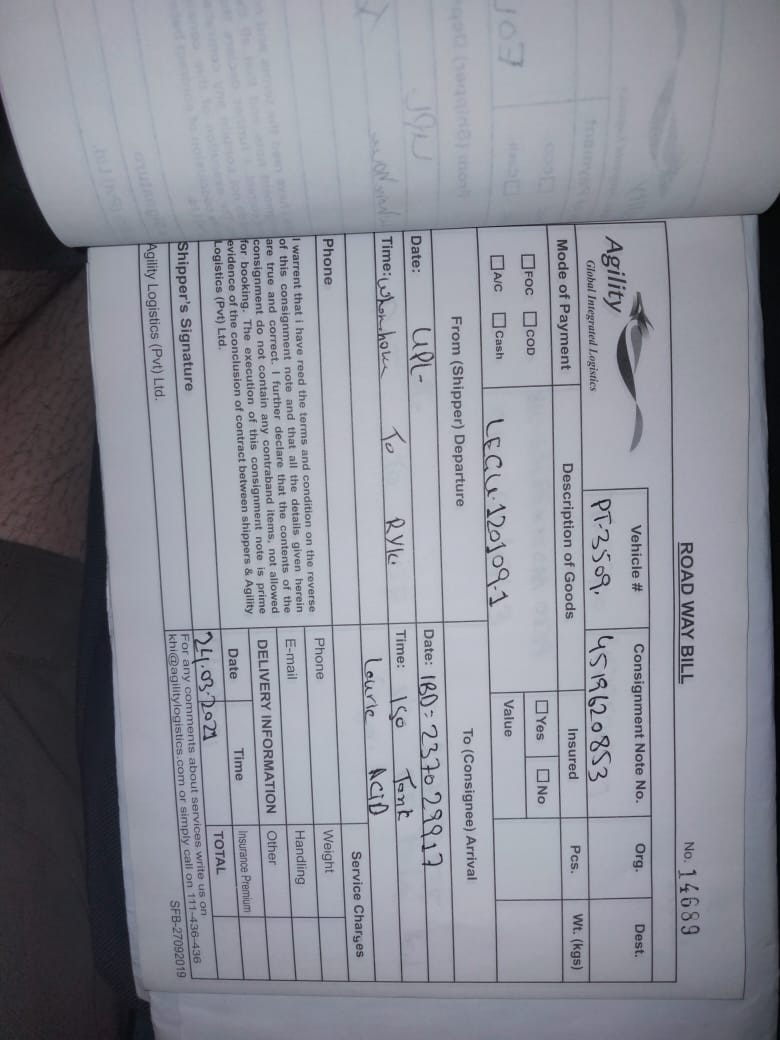 ROAD WAY BILL
No. 14689
Agility
Global Integrated Logistics
Vehicle #
PT-3509.
Consignment Note No.
4519620853
Org.
Dest.
Mode of Payment
FOC COD
A/C Cash
Description of Goods
LEGU-120109-1
Insured
Yes No
Value
Pcs.
Wt. (kgs)
From (Shipper) Departure
Date: UPL-
Time: To RYK.
Phone
I warrent that i have reed the terms and condition on the reverse
of this consignment note and that all the details given herein
are true and correct. I further declare that the contents of the
consignment do not contain any contraband items, not allowed
for booking. The execution of this consignment note is prime
evidence of the conclusion of contract between shippers & Agility
Logistics (Pvt) Ltd.
Shipper's Signature
Agility Logistics (Pvt) Ltd.
To (Consignee) Arrival
Date: IBD= 237029917
Time: ISO Tank
Lauric ACiD
Phone
E-mail
DELIVERY INFORMATION
Date Time
24.03.2021
Service Charges
Weight
Handling
Other
Insurance Premium
TOTAL
For any comments about services write us on
khi@agilitylogistics.com or simply call on 111-436-436
SFB-27092019